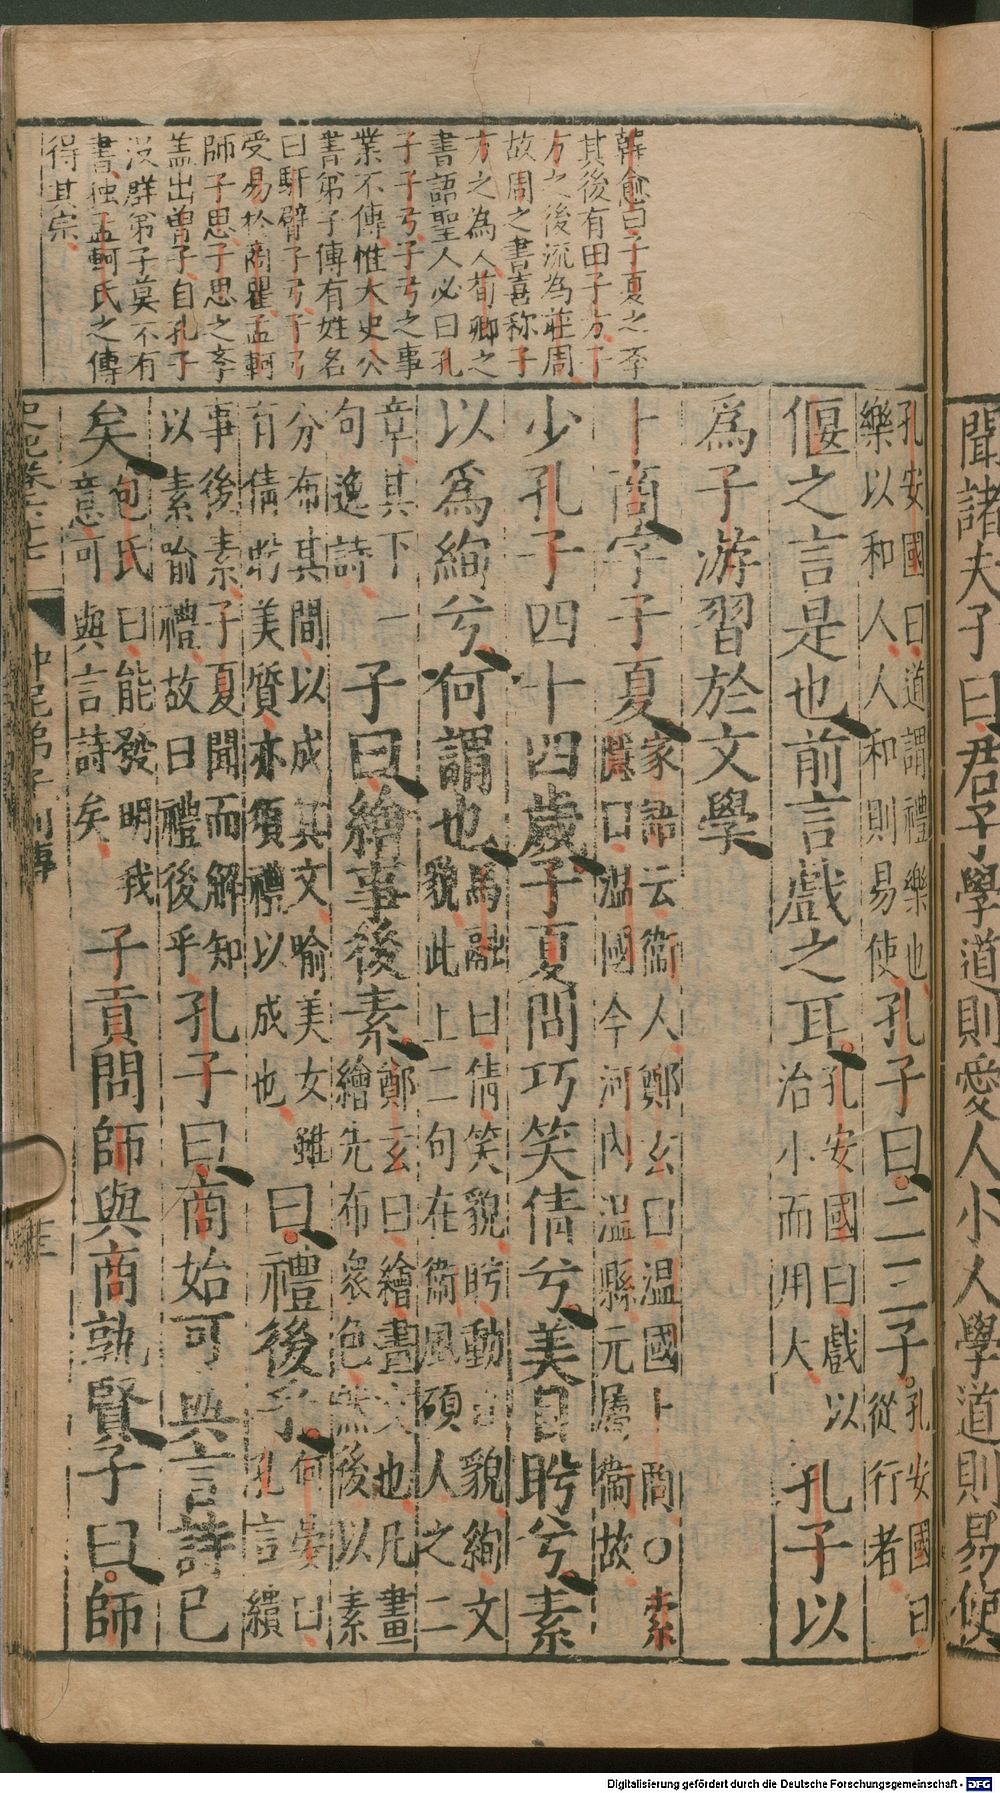 聞諸夫子曰君子學道則愛人小人學道則易使
韓愈曰子夏之李
其後有田子方子
方之後流為莊周
故周之書喜称子
方之為人荀卿之
書語聖人必曰孔
子子弓子弓之事
業不傳惟太史公
書弟子傳有姓名
曰馯臂子弓子弓
受易於商瞿孟軻
師子思子思之李
盖出曽子自孔子
没群弟子莫不有
書独孟軻氏之傳
得其宗
孔安國曰道謂禮樂也
樂以和人人和則易使
孔子曰二三子
孔安國曰
從行者
偃之言是也前言戲之耳
孔安國曰戲以
治小而用大
孔子以
爲子游習於文學
卜商字子夏
家語云衞人鄭玄曰温國卜商○索
隱曰温國今河内温縣元屬衞故
少孔子四十四歲子夏問巧笑倩兮美目盻兮素
以爲絢兮何謂也
馬融曰倩笑貌盻動目貌絢文
貌此上二句在衞風碩人之二
章其下一
句逸詩
子曰繪事後素
鄭玄曰繪畫文也凡畫
繪先布衆色然後以素
分布其間以成其文喻美女雖
有倩盻美質亦須禮以成也
曰禮後乎
何晏曰
孔言繢
事後素子夏聞而解知
以素喻禮故曰禮後乎
孔子曰商始可與言詩已
矣
包氏曰能發明我
意可與言詩矣
子貢問師與商孰賢子曰師
史記卷六十七
仲尼弟子列傳
Digitalisierung gefördert durch die Deutsche Forschungsgemeinschaft - DFG